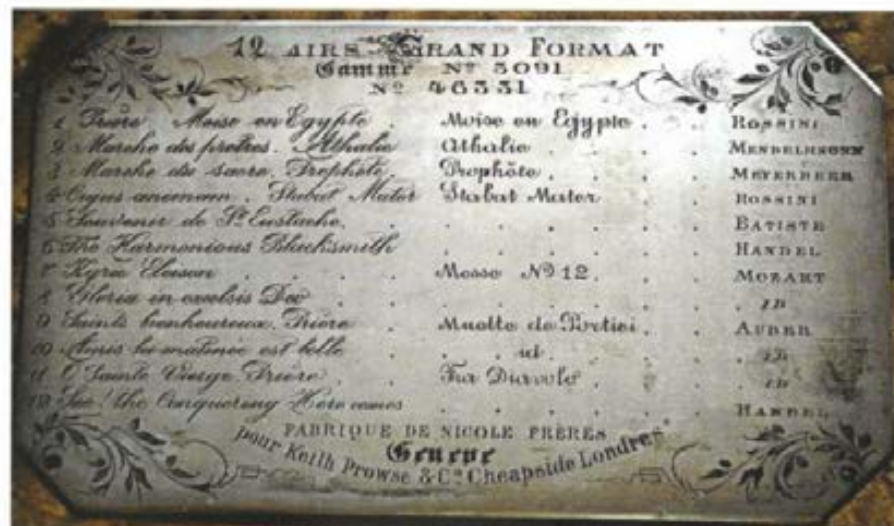 12 AIRS GRAND FORMAT
Gamme Nº 5091
Nº 46331
1 Prière Moise en Egypte . Moise en Egypte . . ROSSINI
2 Marche des prêtres. Athalie Athalie . . . . MENDELHSONN
3 Marche du sacre. Prophète Prophète . . . . MEYERBEER
4 Cujus animam . Stabat Mater Stabat Mater . . . ROSSINI
5 Souvenir de St Eustache. . . . . . . BATISTE
6 The Harmonious Blacksmith . . . . . . HANDEL
7 Kyrie Eleison . . . . Messe Nº 12. . . . MOZART
8 Gloria in excelsis Deo . . . . . . . ID
9 Saints bienheureux. Prière Muette de Portici . . AUBER
10 matinée est belle . . . id . . . . ID
11 O Sainte Vierge. Prière . Fra Diavolo . . . . ID
12 See! the Conquering Hero comes . . . . . . HANDEL
FABRIQUE DE NICOLE FRÈRES
Genève
pour Keith Prowse & Co. Cheapside Londres